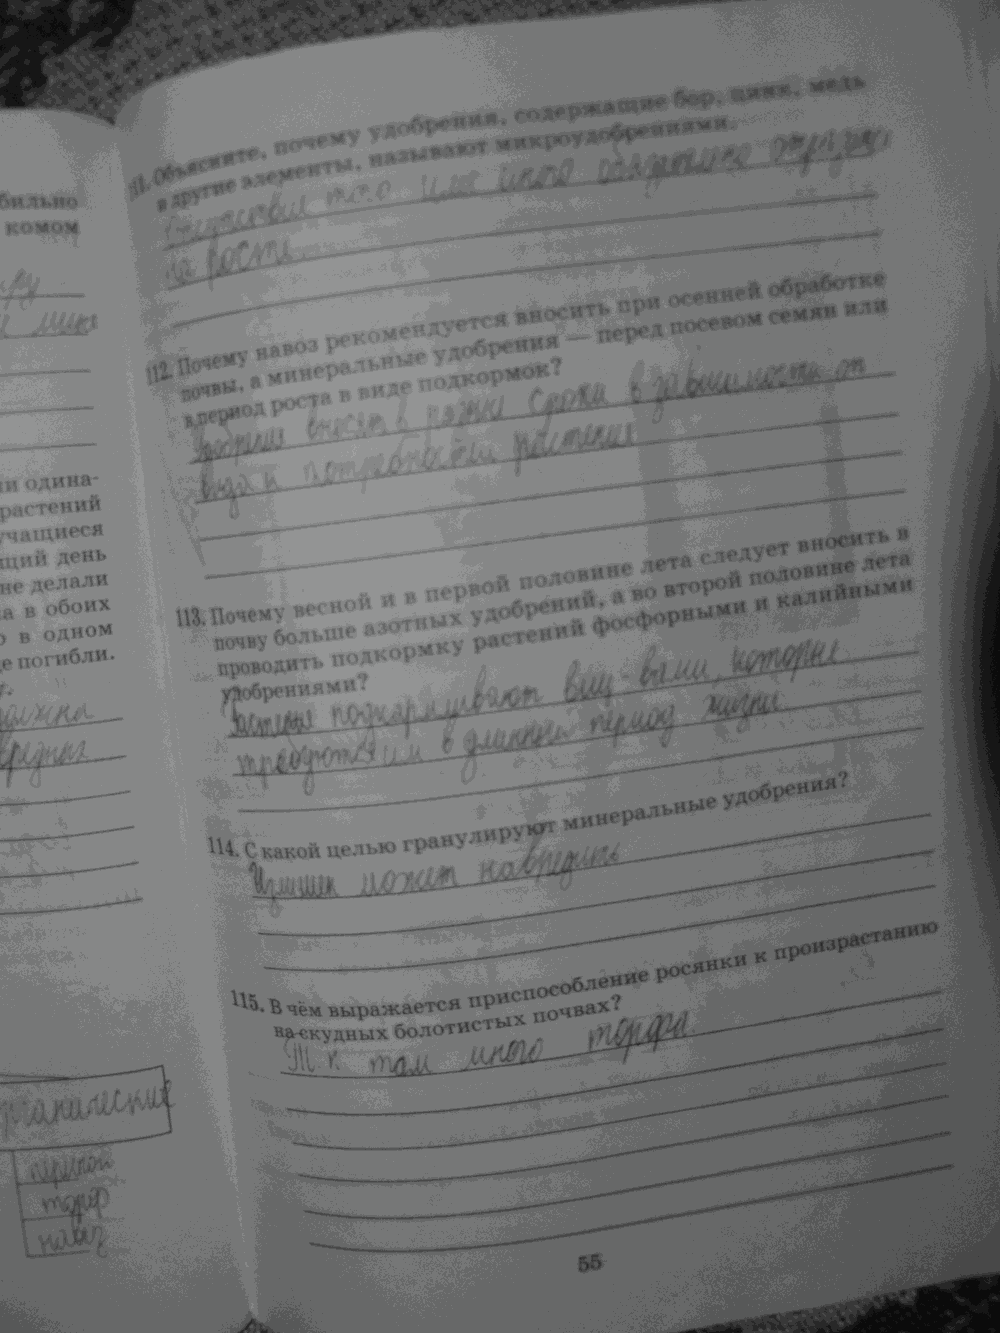 бильно
комом
ру
и одина-
растений
учащиеся
щий день
не делали
а в обоих
о в одном
де погибли.
должна
вредных
органические
перегной
торф
навоз
111. Объясните, почему удобрения, содержащие бор, цинк, медь
и другие элементы, называют микроудобрениями.
того или иного обязательно
на росте.
112. Почему навоз рекомендуется вносить при осенней обработке
почвы, а минеральные удобрения — перед посевом семян или
в период роста в виде подкормок?
Удобрения вносят в разные сроки в зависимости от
вида и потребностей растения
113. Почему весной и в первой половине лета следует вносить в
почву больше азотных удобрений, а во второй половине лета
проводить подкормку растений фосфорными и калийными
удобрениями?
Растения подкармливают вещ-вами, которые
требуются им в длинный период жизни
114. С какой целью гранулируют минеральные удобрения?
Излишек может навредить
115. В чём выражается приспособление росянки к произрастанию
на скудных болотистых почвах?
Т к там много торфа
55